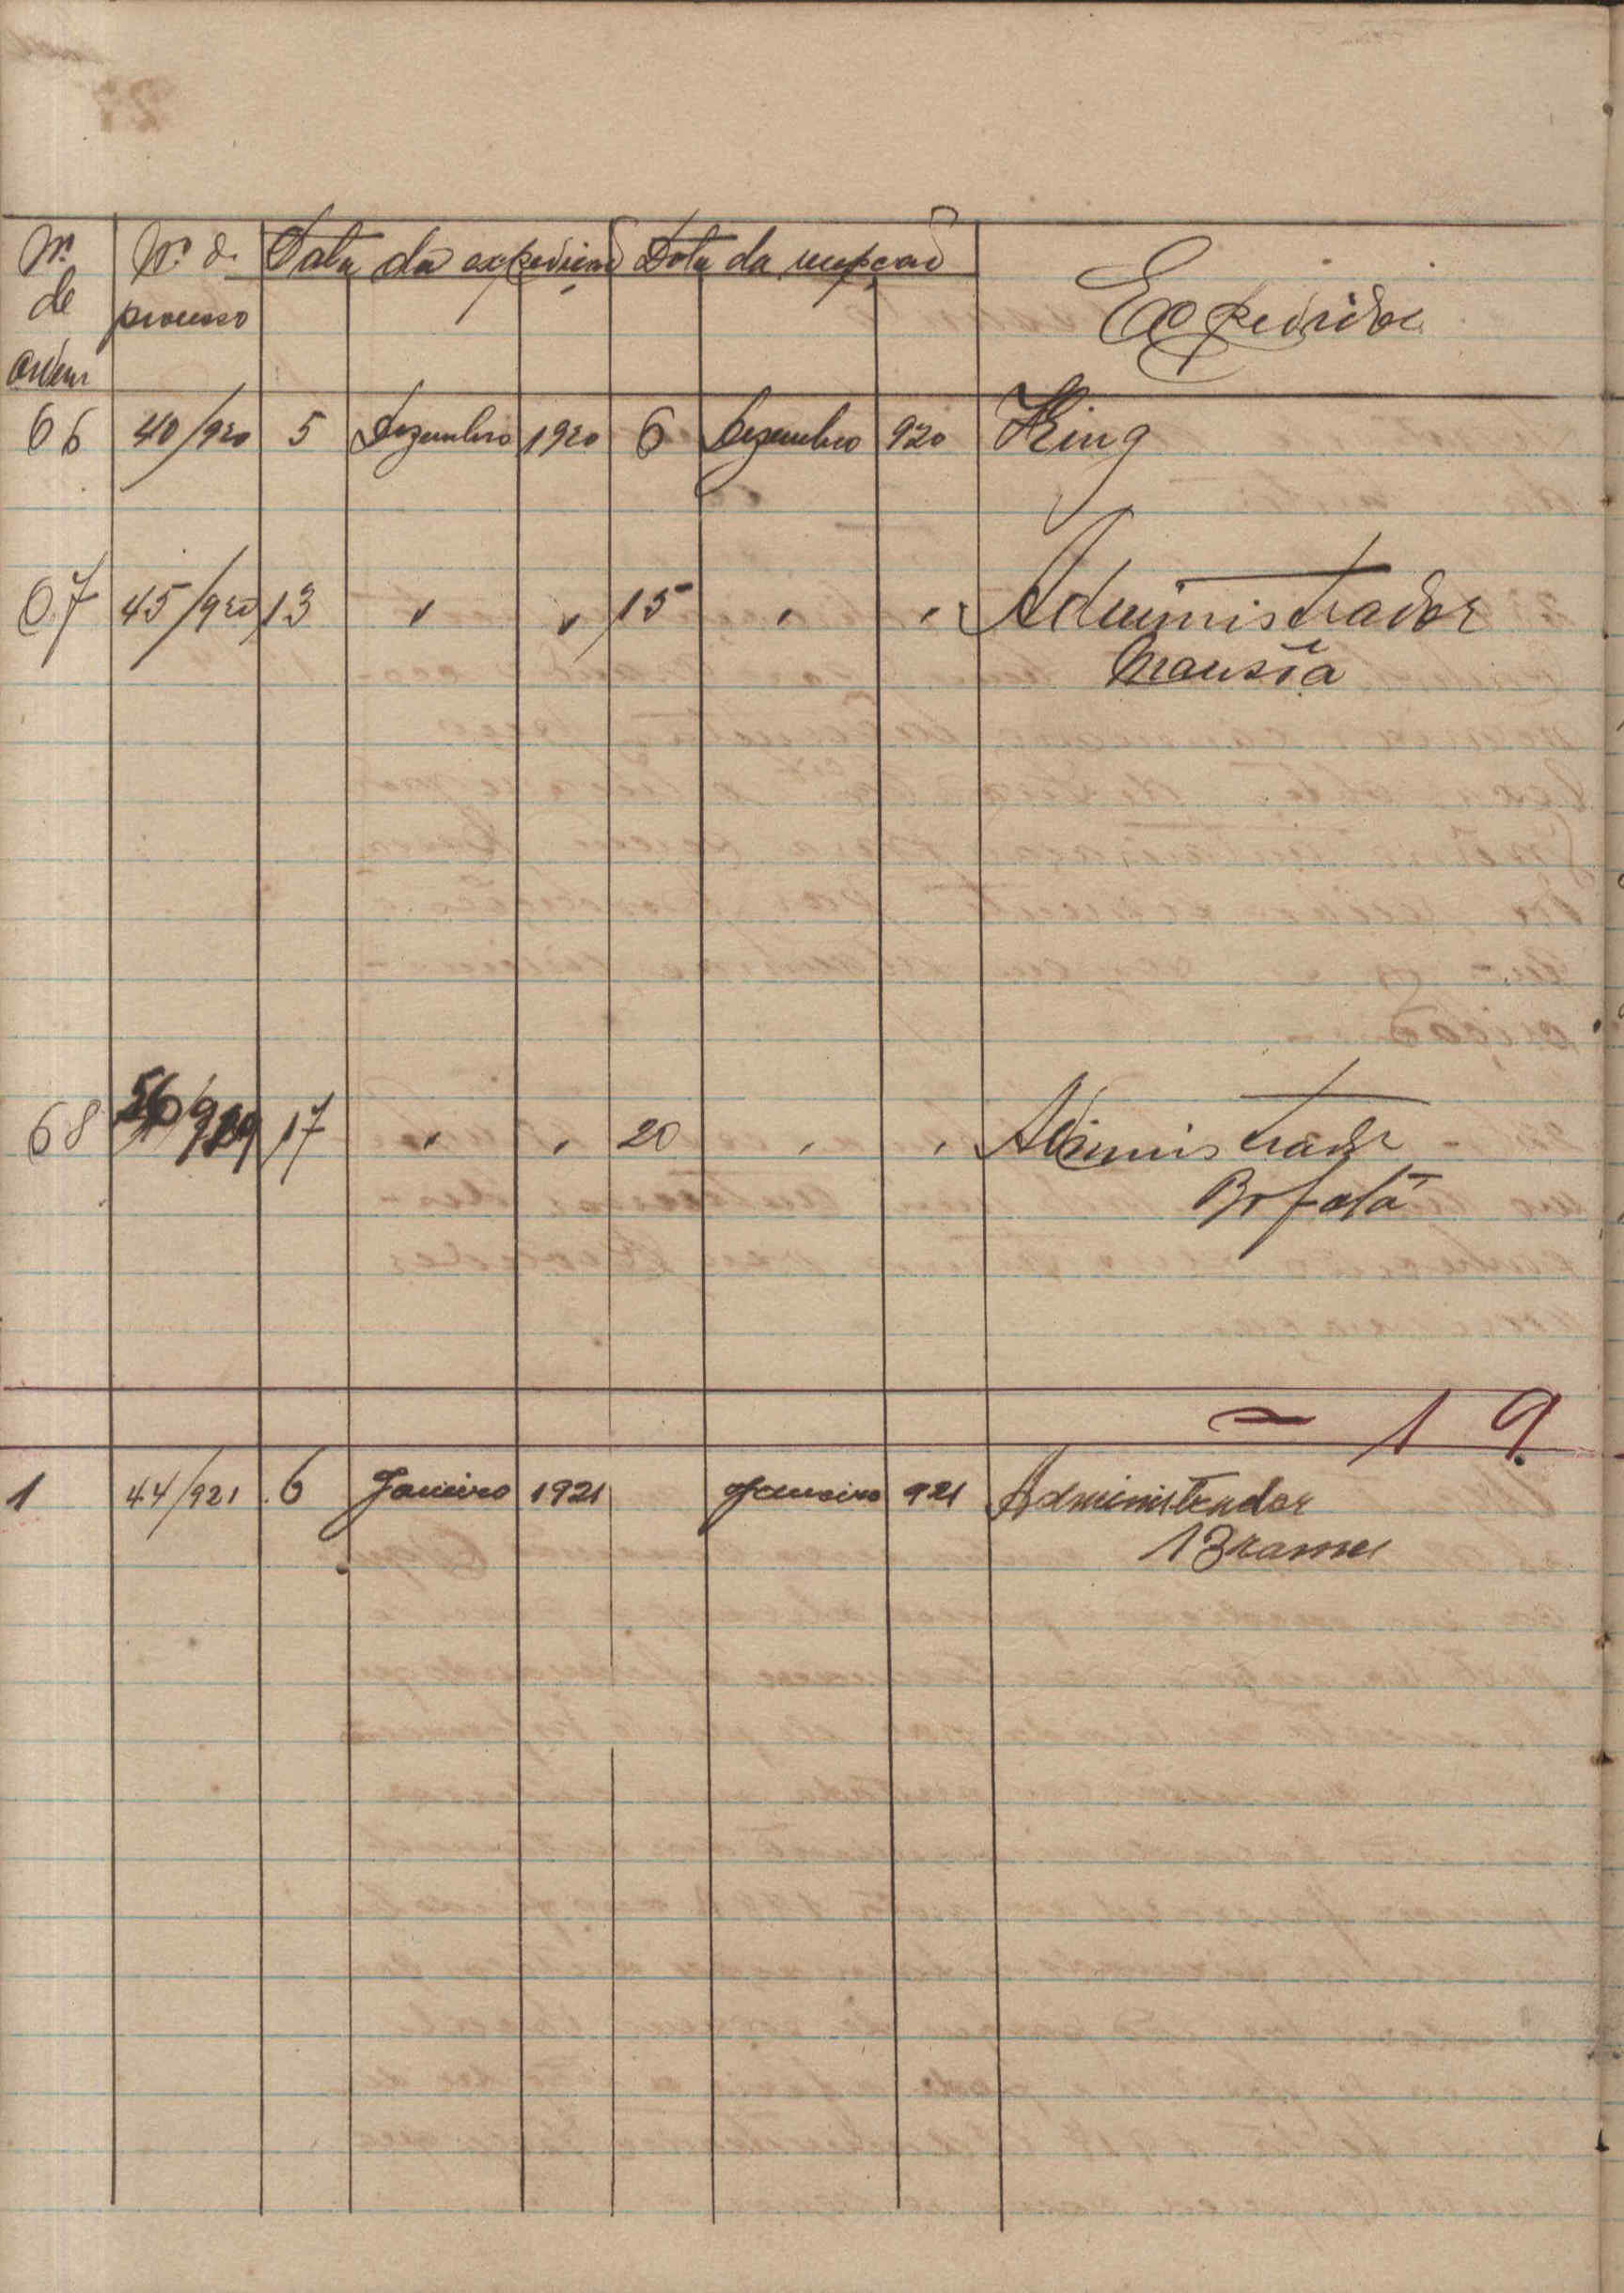 Nº de ordem | Nº do processo | Data da expedição | Data da recepção | Expedidor
66 | 40/920 | 5 | Dezembro | 1920 | 6 | Dezembro | 920 | King
67 | 45/920 | 13 | " | " | 15 | " | " | Administrador
Mansôa
68 | 17 | " | " | 20 | " | " | Administrador
Bafatá
= 19
1 | 44/921 | 6 | Janeiro | 1921 | Janeiro | 921 | Administrador
Brames